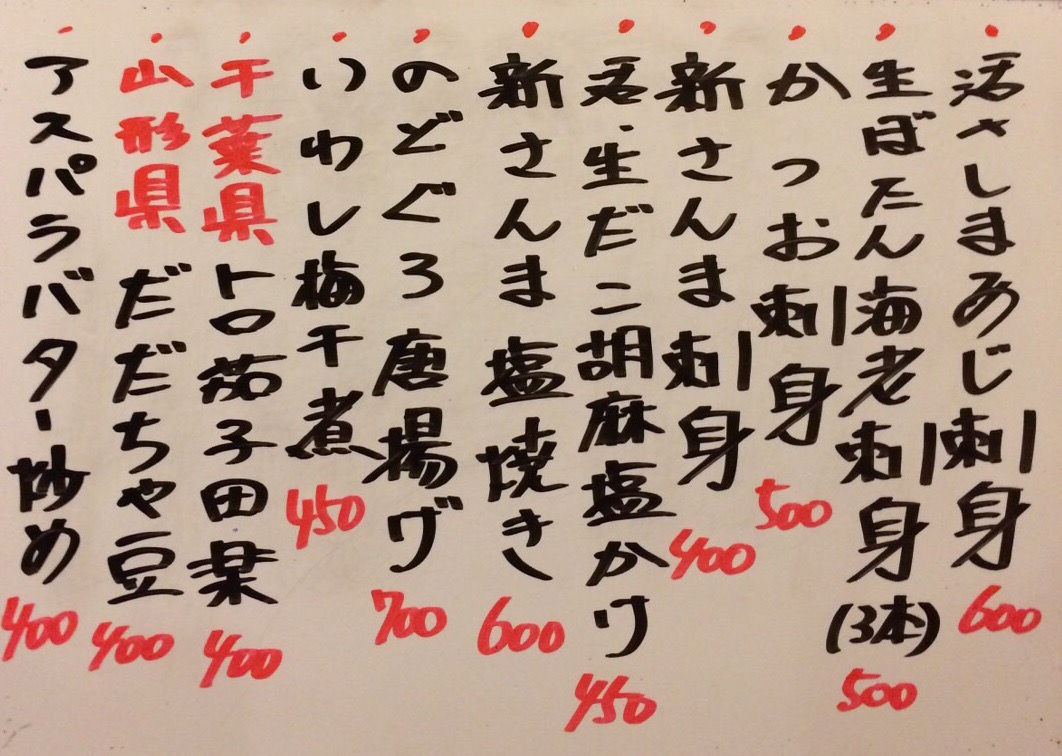 活さしまあじ刺身 600
生ぼたん海老刺身(3本) 500
かつお刺身 500
新さんま刺身 400
活・生だこ胡麻塩かけ 450
新さんま塩焼き 600
のどぐろ唐揚げ 700
いわし梅干煮 450
千葉県トロ茄子田楽 400
山形県だだちゃ豆 400
アスパラバター炒め 400